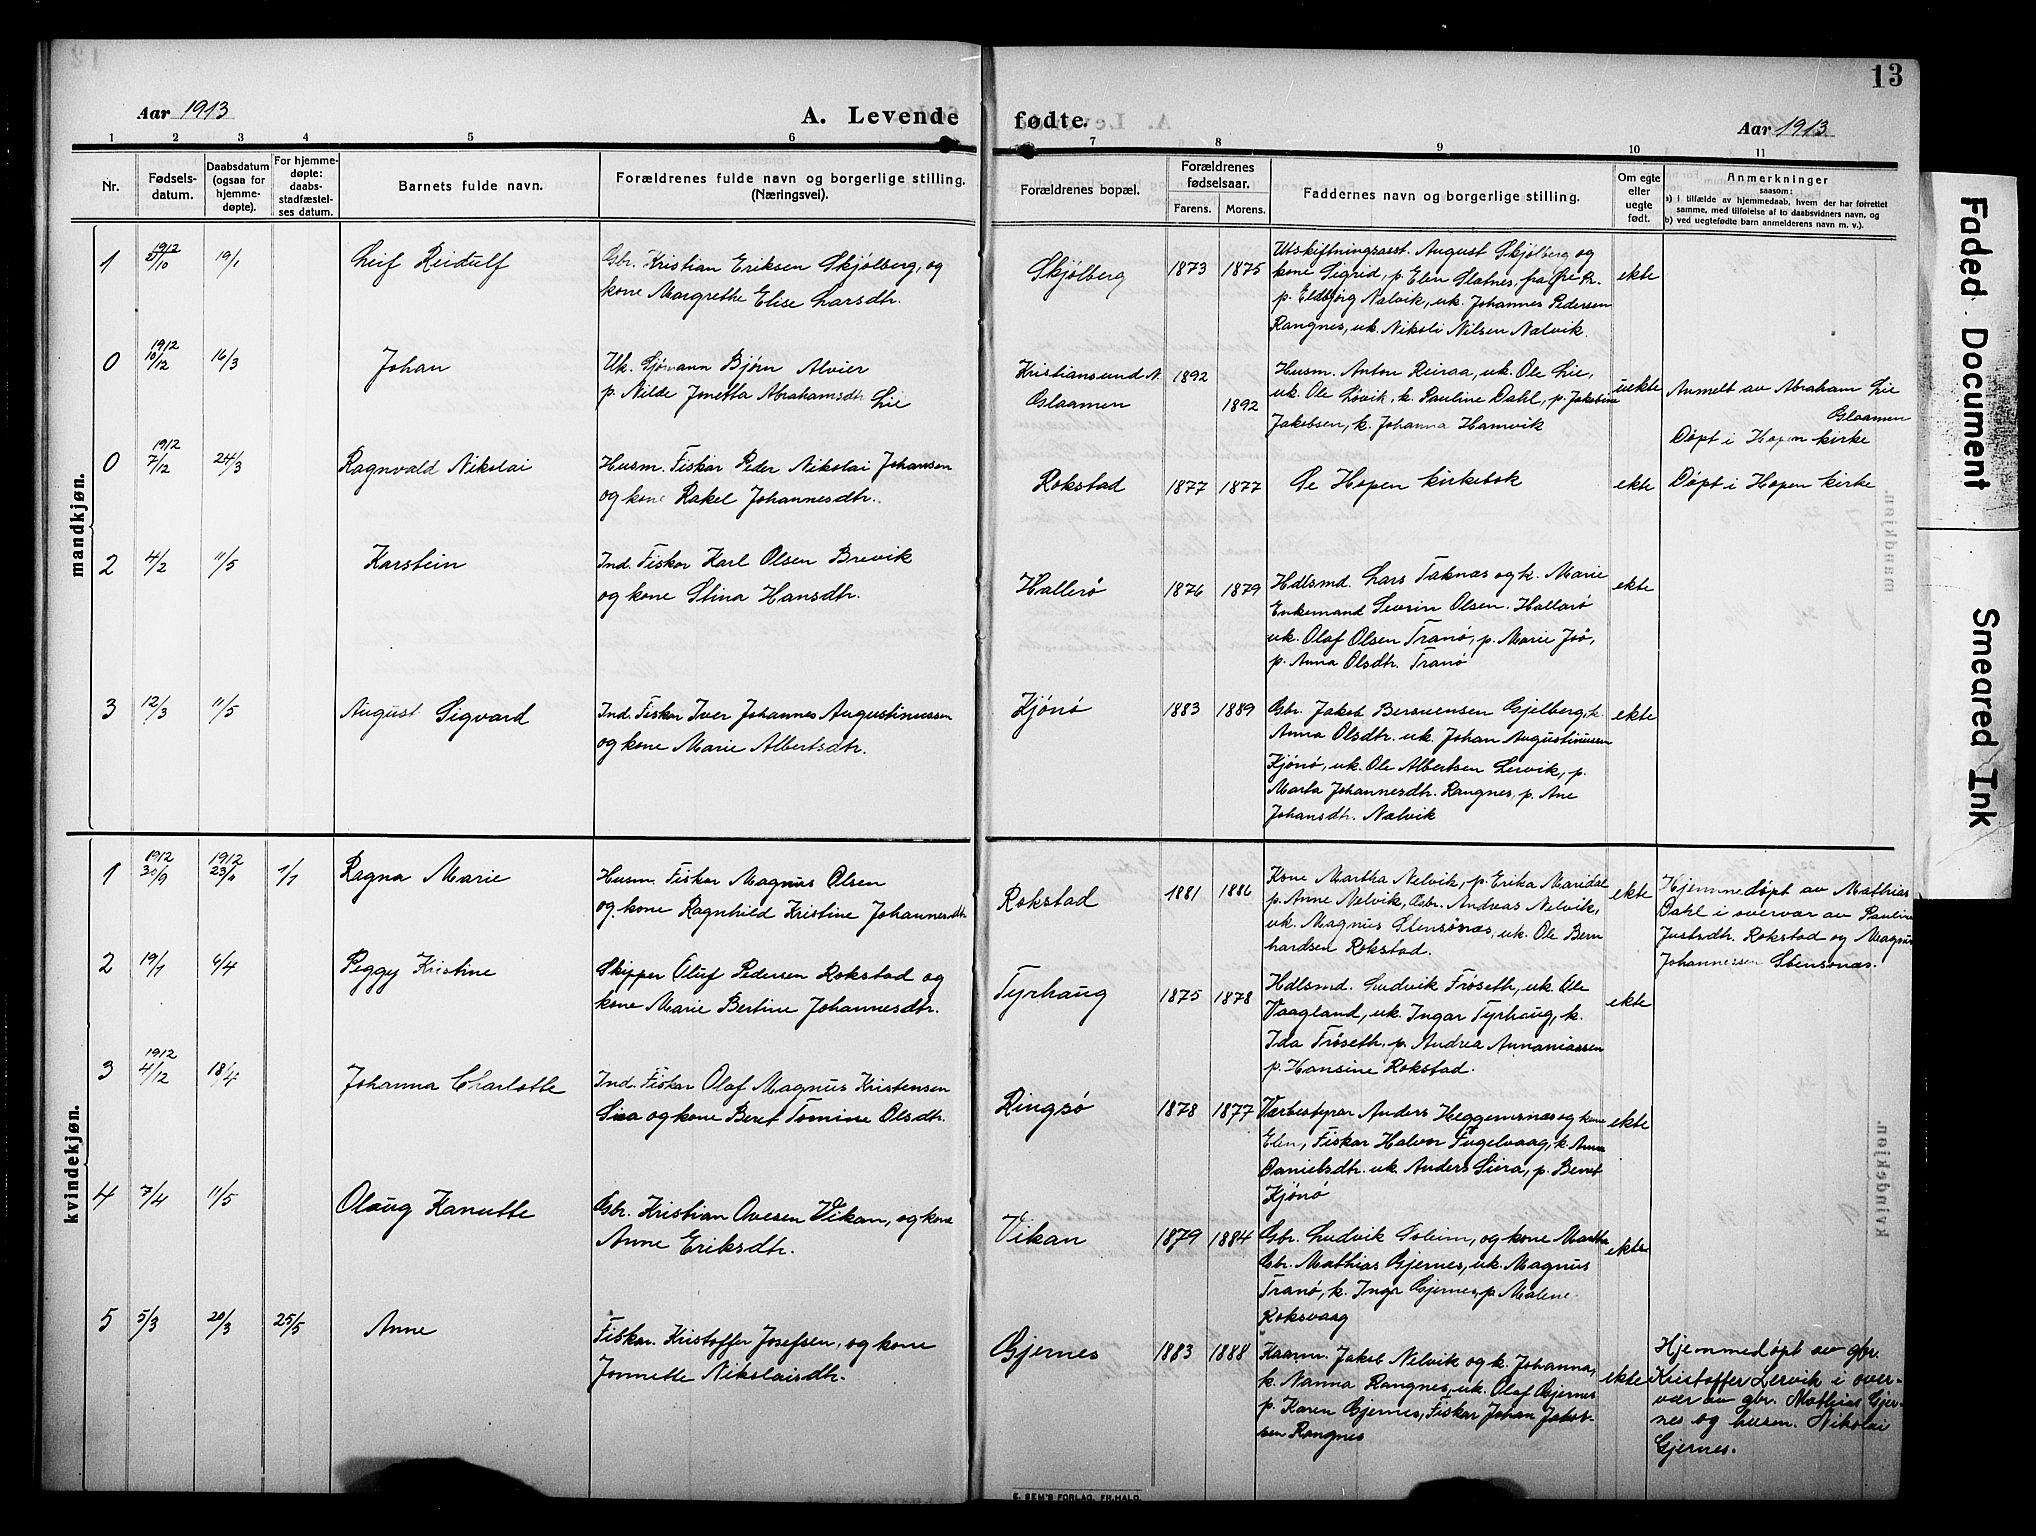 13
Aar 1913
A. Levende fødte.
Aar 1913
1 2 3 4 5 6 7 8 9 10 11
Nr.
Fødsels-
datum.
Daabsdatum
(ogsaa for
hjemme-
døpte).
For hjemme-
døpte:
daabs-
stadfæstel-
ses datum.
Barnets fulde navn.
Forældrenes fulde navn og borgerlige stilling.
(Næringsvei).
Forældrenes bopæl.
Forældrenes
fødselsaar.
Farens. Morens.
Faddernes navn og borgerlige stilling.
Om egte
eller
uegte
født.
Anmerkninger
saasom:
a) I tilfælde av hjemmedaab, hvem der har forrettet
samme, med tilføielse af to daabsvidners navn, og
b) ved uegtefødte barn anmelderens navn m. v.).
mandkjøn.
1
1912
19/1
Leif Reidulf
Gbr. Kristian Eriksen Skjølberg, og
kone Margrethe Elise Larsdtr.
Skjølberg
1873 1875
Utskiftningsasst. August Skjølberg og
kone Sigrid, p. Elen Slatnes,
p. Eldbjørg Nælvik, uk. Johannes Pedersen
Rangnes, uk. Nikoli Nilsen Nælvik.
ekte
0
1912
10/12
16/3
Johan
Uk. Sjømann Bjørn Alvier
p. Nilde Jonetta Abrahamsdtr. Lie
Kristiansund N. 1892
1892
Husm. Anton Reiraa, uk. Ole Lie,
uk. Ole Løvik, k. Pauline Dahl, p. Jakobine
Jakobsen, k. Johanna Hamvik
uekte
Anmelt av Abraham Lie
Døpt i Hopen kirke
0
1912
7/12
24/3
Ragnvald Nikolai
Husm. Fisker Peder Nikolai Johansen
og kone Rakel Johannesdtr.
Rokstad
1877 1877
Se Hopen kirkebok
ekte
Døpt i Hopen kirke
2
4/2
11/5
Karstein
Ind. Fisker Karl Olsen Brevik
og kone Stina Hansdtr.
Hallerø
1876 1879
Hdlsmd. Lars Taknæs og k. Marie
Enkemand Severin Olsen Hallarø
uk. Olaf Olsen Tranø, p. Marie
p. Anna Olsdtr. Tranø
ekte
3
12/3
11/5
August Sigvard
Ind. Fisker Iver Johannes Augustinussen
og kone Marie Albertsdtr.
Kjønø
1883 1889
Gbr. Jakob Bersvensen Gjelberg, k.
Anna Olsdtr. uk. Johan Augustinussen
Kjønø, uk. Ole Albertsen Lervik, p.
Marta Johannesdtr. Rangnes, p. Ane
Johansdtr. Nælvik
ekte
kvindekjøn.
1
1912
30/9
1912
1/1
Ragna Marie
Husm. Fisker Magnus Olsen
og kone Ragnhild Kristine Johannesdtr.
Rokstad
1881 1886
Kone Martha Nelvik, p. Erika Maridal
p. Anne Nelvik, Gbr. Andreas Nelvik,
uk. Magnus Stensønæs, uk. Ole Bern
hardsen Rokstad.
ekte
Hjemmedøpt av Mathias
Dahl i overvær av Pauline
Justsdtr. Rokstad og Magnus
Johannessen Stensønæs.
2
19/1
6/4
Peggy Kristine
Skipper Oluf Pedersen Rokstad og
kone Marie Bertine Johannesdtr.
Tyrhaug
1875 1878
Hdlsmd. Ludvik Frøseth, uk. Ole
Vaagland, uk. Ingar Tyrhaug, k.
Ida Frøseth, p. Andrea Annaniassen
p. Hansine Rokstad.
ekte
3
1912
4/12
18/4
Johanna Charlotte
Ind. Fisker Olaf Magnus Kristensen
og kone Beret Tomine Olsdtr.
Ringsø
1878 1877
Værbestyrer Anders Heggemsnæs og kone
Elen, Fisker Halvor Fugelvaag, k. Anna
Danielsdtr. uk. Anders Siira, p. Beret
Kjønø
ekte
4
7/4
11/5
Olaug Kanutte
Gbr. Kristian Ovesen Vikan, og kone
Anne Eriksdtr.
Vikan
1879 1884
Gbr. Ludvik Soleim, og kone Martha
Gbr. Mathias Gjernes, uk. Magnus
Tranø, k. Inga Gjernes, p. Malene
Roksvaag
ekte
5
5/3
20/3
25/5
Anne
Fisker. Kristoffer Josefsen, og kone
Jonnette Nikolaisdtr.
Gjernes
1883 1888
Kaarm. Jakob Nelvik og k. Johanna,
k. Nanna Rangnes, uk. Olaf Gjernes
p. Karen Gjernes, Fisker Johan Jakob-
sen Rangnes
ekte
Hjemmedøpt av gbr.
Kristoffer Lervik i over-
vær av gbr. Mathias Gjer-
nes og husm. Nikolai
Gjernes.
E. SEM'S FORLAG, FR.HALD.
Faded Document
Smeared Ink